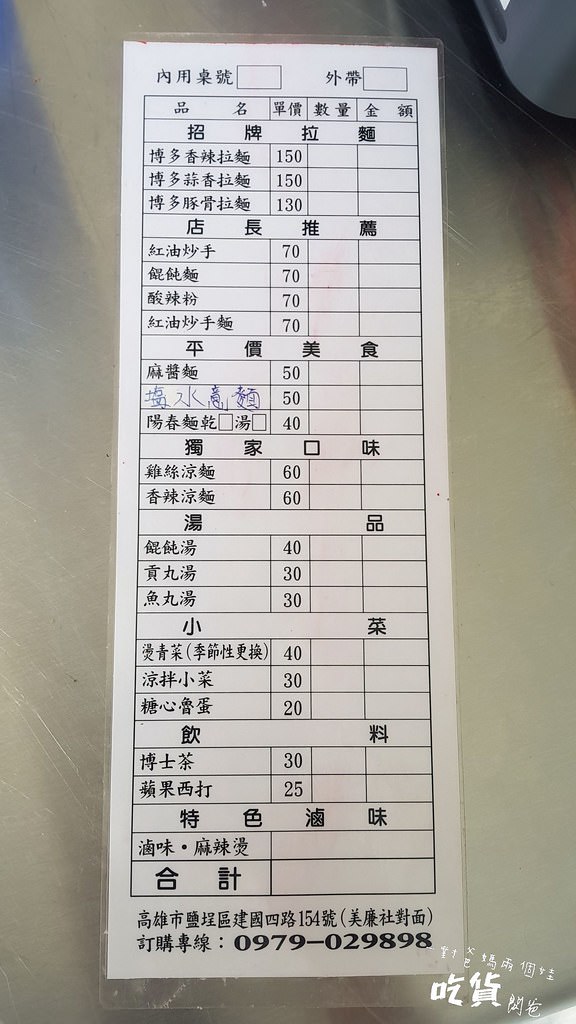 內用桌號 外帶
品名 單價 數量 金額
招牌拉麵
博多香辣拉麵 150
博多蒜香拉麵 150
博多豚骨拉麵 130
店長推薦
紅油炒手 70
餛飩麵 70
酸辣粉 70
紅油炒手麵 70
平價美食
麻醬麵 50
塩水意麵 50
陽春麵乾□湯□ 40
獨家口味
雞絲涼麵 60
香辣涼麵 60
湯品
餛飩湯 40
貢丸湯 30
魚丸湯 30
小菜
燙青菜(季節性更換) 40
涼拌小菜 30
糖心魯蛋 20
飲料
博士茶 30
蘋果西打 25
特色滷味
滷味・麻辣燙
合計
高雄市鹽埕區建國四路154號(美廉社對面)
訂購專線：0979-029898
對爸媽兩個娃
吃貨閎爸